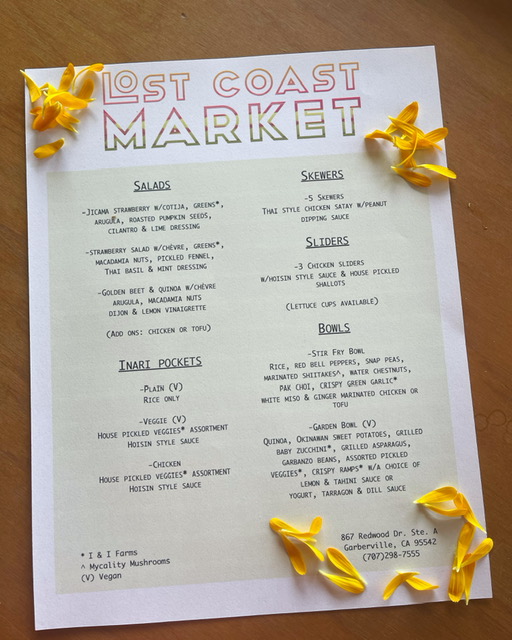 LOST COAST
MARKET
SALADS
-JICAMA STRAWBERRY W/COTIJA, GREENS*,
ARUGULA, ROASTED PUMPKIN SEEDS,
CILANTRO & LIME DRESSING
-STRAWBERRY SALAD W/CHÈVRE, GREENS*,
MACADAMIA NUTS, PICKLED FENNEL,
THAI BASIL & MINT DRESSING
-GOLDEN BEET & QUINOA W/CHÈVRE
ARUGULA, MACADAMIA NUTS
DIJON & LEMON VINAIGRETTE
(ADD ONS: CHICKEN OR TOFU)
INARI POCKETS
-PLAIN (V)
RICE ONLY
-VEGGIE (V)
HOUSE PICKLED VEGGIES* ASSORTMENT
HOISIN STYLE SAUCE
-CHICKEN
HOUSE PICKLED VEGGIES* ASSORTMENT
HOISIN STYLE SAUCE
* I & I Farms
^ Mycality Mushrooms
(V) Vegan
SKEWERS
-5 SKEWERS
THAI STYLE CHICKEN SATAY W/PEANUT
DIPPING SAUCE
SLIDERS
-3 CHICKEN SLIDERS
W/HOISIN STYLE SAUCE & HOUSE PICKLED
SHALLOTS
(LETTUCE CUPS AVAILABLE)
BOWLS
-STIR FRY BOWL
RICE, RED BELL PEPPERS, SNAP PEAS,
MARINATED SHIITAKES^, WATER CHESTNUTS,
PAK CHOI, CRISPY GREEN GARLIC*
WHITE MISO & GINGER MARINATED CHICKEN OR
TOFU
-GARDEN BOWL (V)
QUINOA, OKINAWAN SWEET POTATOES, GRILLED
BABY ZUCCHINI*, GRILLED ASPARAGUS,
GARBANZO BEANS, ASSORTED PICKLED
VEGGIES*, CRISPY RAMPS* W/A CHOICE OF
LEMON & TAHINI SAUCE OR
YOGURT, TARRAGON & DILL SAUCE
867 Redwood Dr. Ste. A
Garberville, CA 95542
(707)298-7555